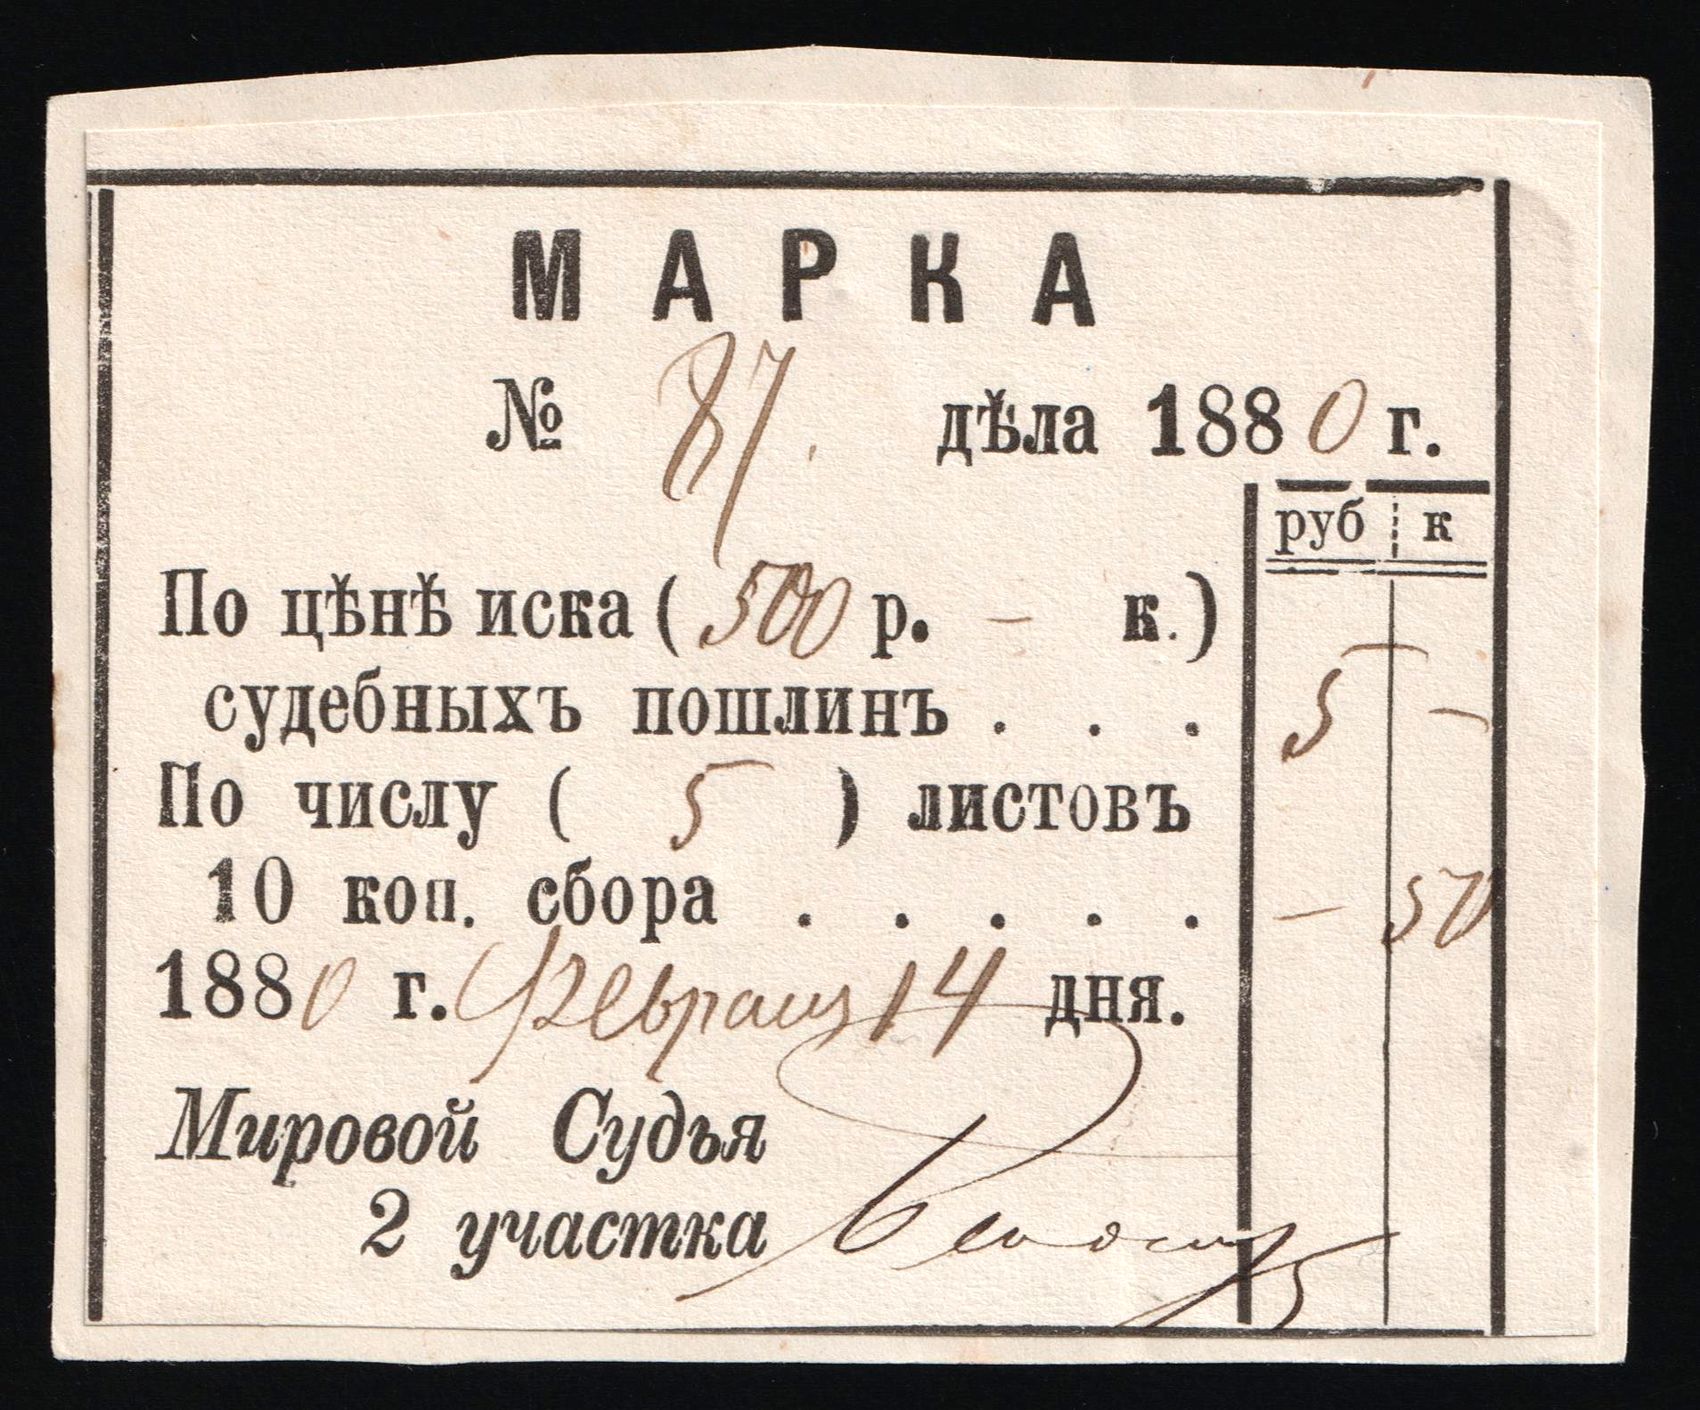 МАРКА
№ 87. дѣла 1880 г.
руб к
По цѣнѣ иска ( 500 р. – к.)
судебныхъ пошлинъ . . . 5 –
По числу ( 5 ) листовъ
10 коп. сбора . . . . . – 50
1880 г. Февраля 14 дня.
Мировой Судья
2 участка